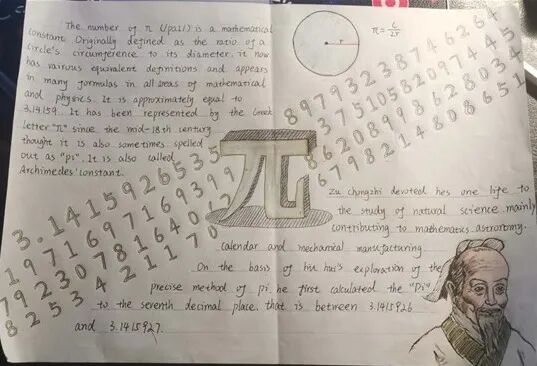 The number of π (/paɪ/) is a mathematical
constant. Originally defined as the ratio of a
circle's circumference to its diameter, it now
has vairous equivalent definitions and appears
in many formulas in all areas of mathematical
and physics. It is approximately equal to
3.14159. It has been represented by the Greek
letter "π" since the mid-18th century
thought it is also sometimes spelled
out as "pi". It is also called
Archimedes' constant.
r
π = C/2r
3.1415926535 8979323874626
1971697169399 375105820974445
79230781640 6208998628034
825342117 0 6798214808651
π
Zu chongzhi devoted hes one life to
the study of natural science mainly
contributing to mathematics, astrortomy.
calendar and mechanical manufacturing.
On the basis of hui's exploration of the
precise method of pi, he first calculated the "Pi"
to the seventh decimal place, that is between 3.1415926
and 3.1415927.